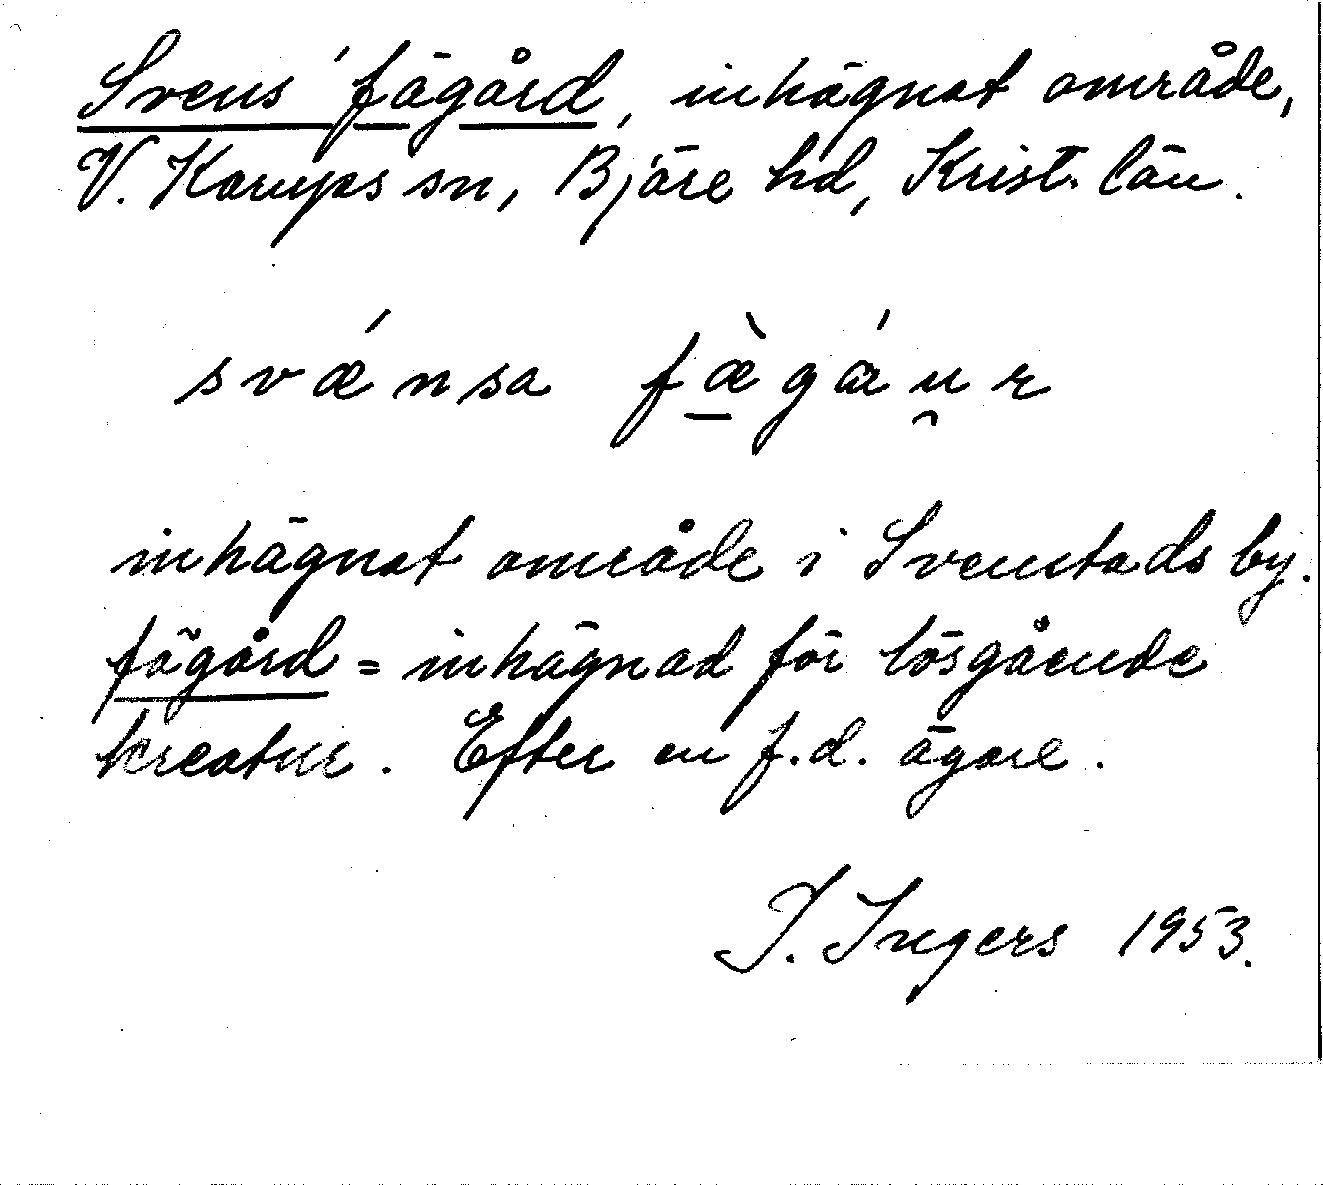 Svens' fägård, inhägnat område,
V. Karups sn, Bjäre hd, Krist. län.
svǽnsa fæ̠̀gáu̯r
inhägnat område i Svenstads by.
fägård = inhägnad för lösgående
kreatur. Efter en f.d. ägare.
I. Ingers 1953.